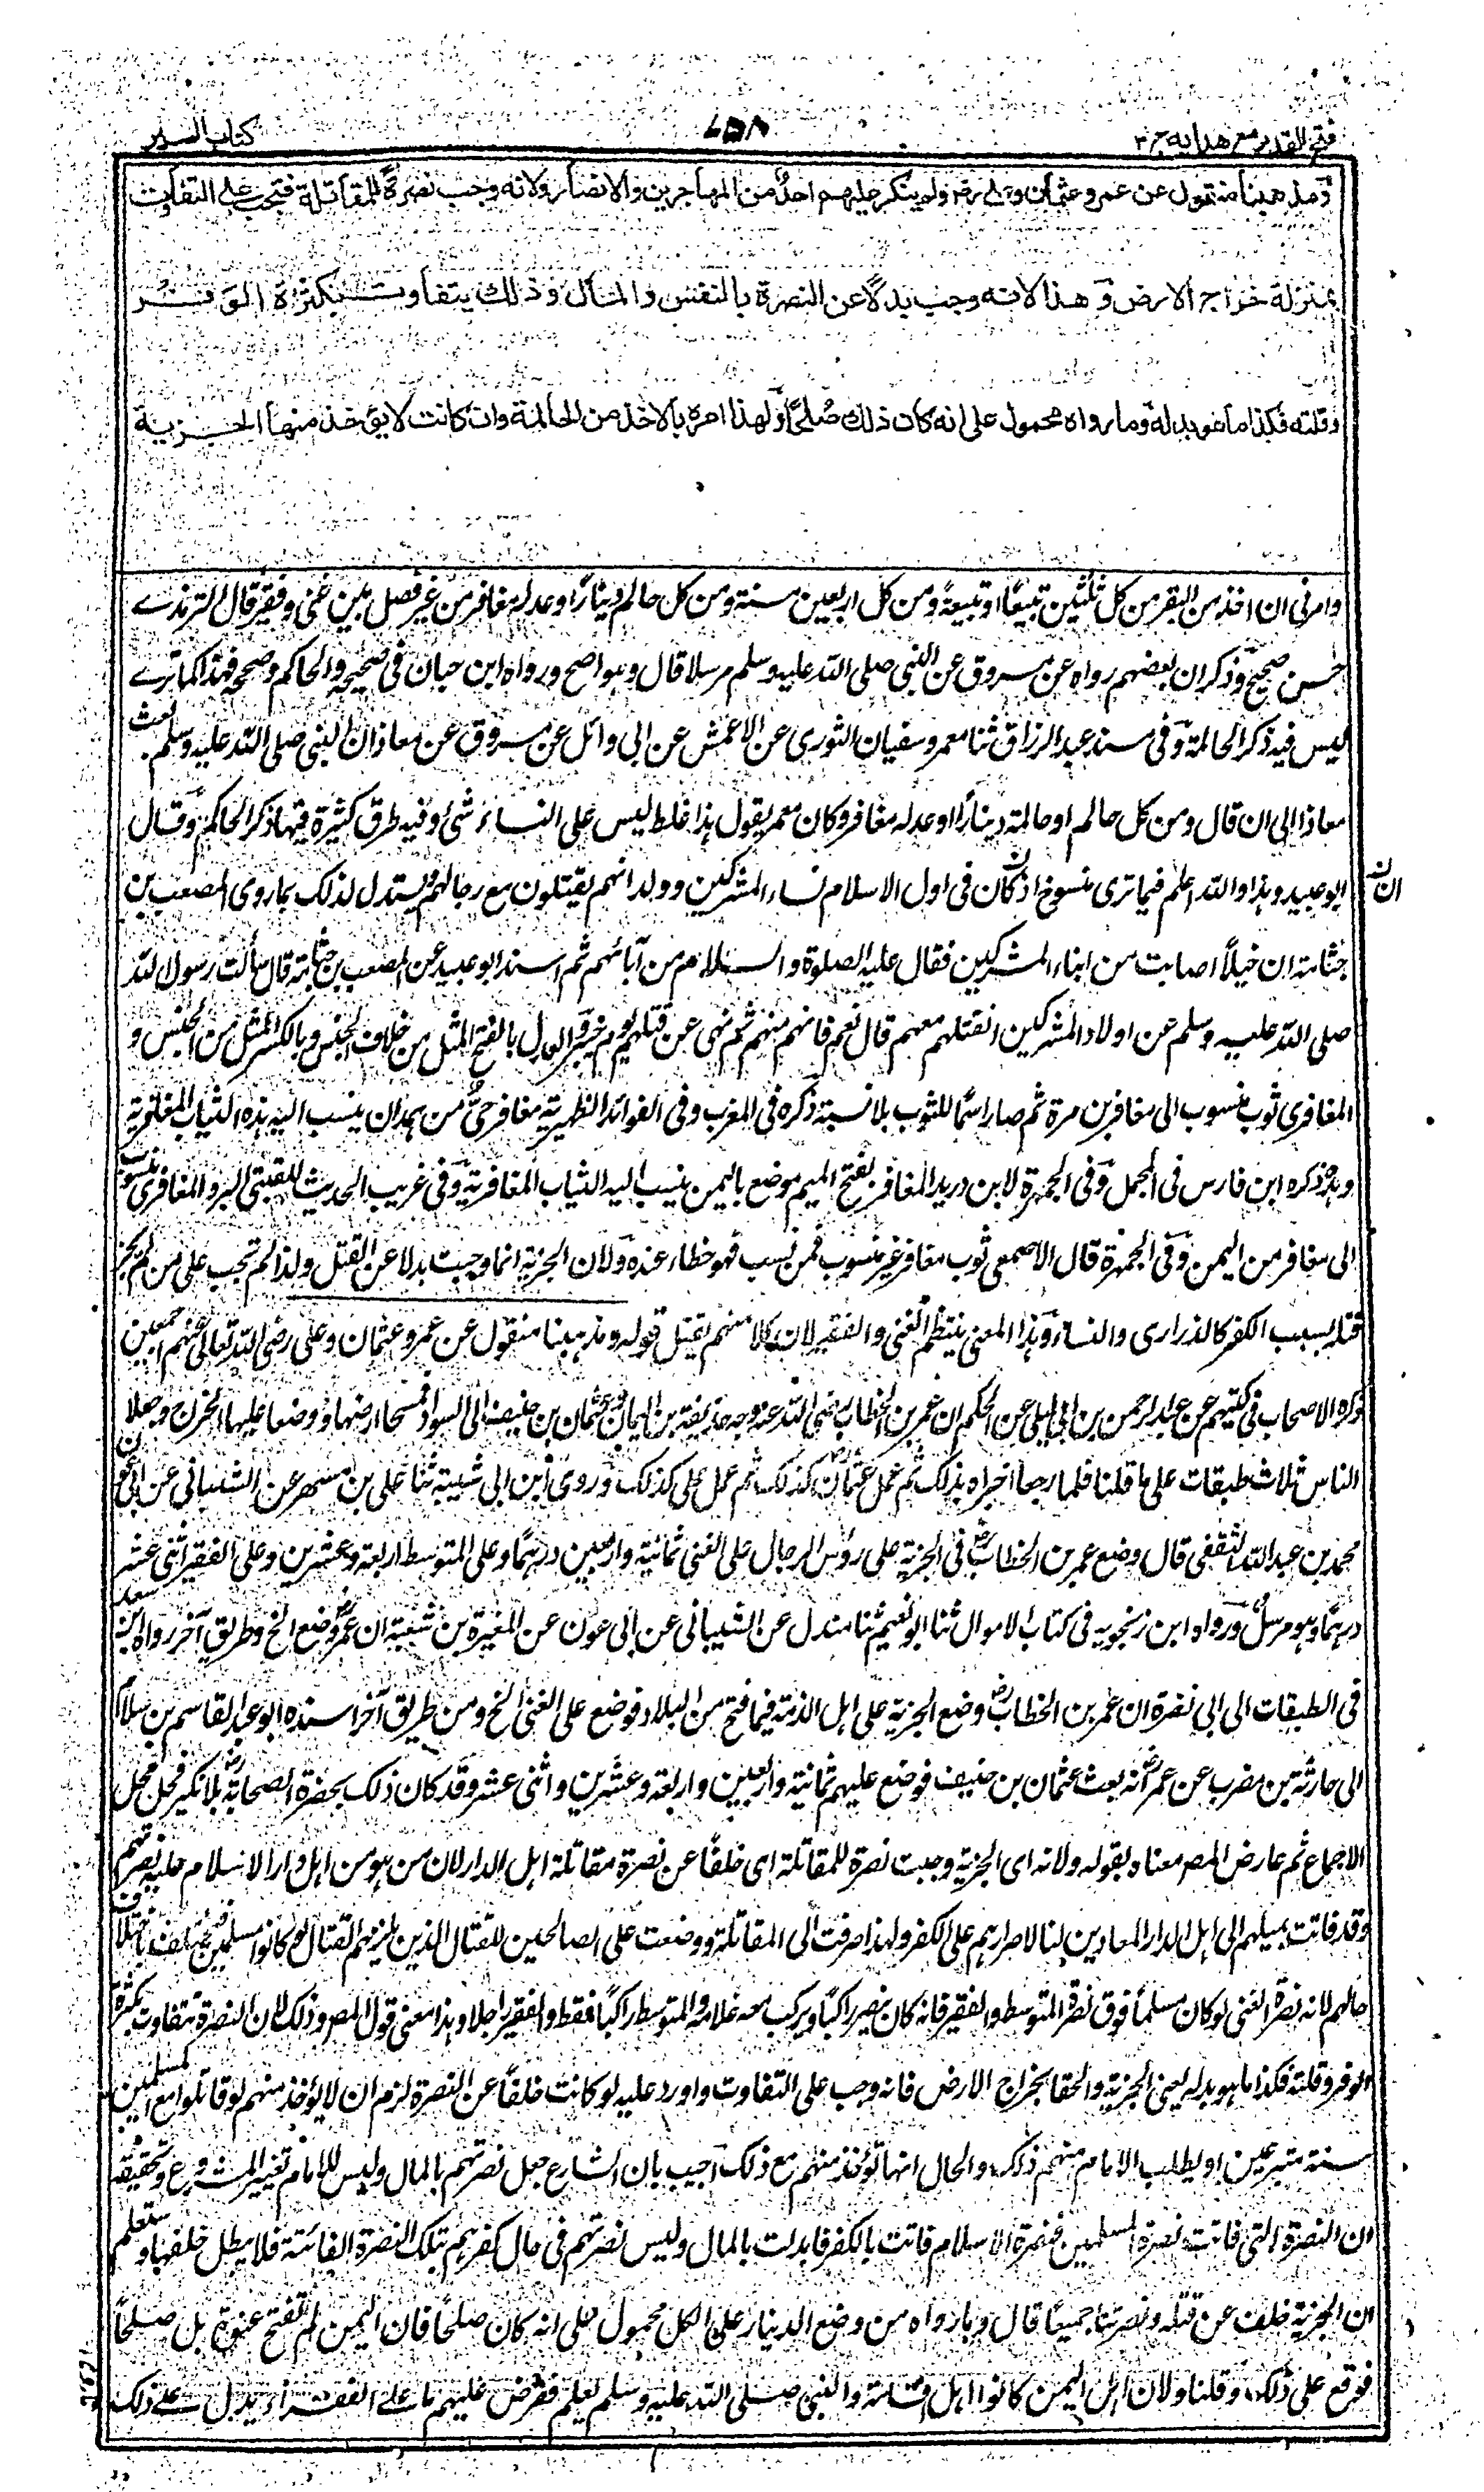 فتح القدير مع هدايه ج ٢
٧٥٨
كتاب السير
ومذهبنا منقول عن عمر وعثمان وعلي رضـ ولم ينكر عليهم احد من المهاجرين والانصار ولانه وجب نصرةً للمقاتلة فتجب على التفاوت
بمنزلة خراج الارض وهذا لانه وجب بدلا عن النصرة بالنفس والمال وذلك يتفاوت بكثرة الوفـــر
وقلته فكذا ما هو بدله وما رواه محمول على انه كان ذلك صُلحًا ولهذا امره بالاخذ من الحالمة وان كانت لا يؤخذ منها الجـــزية
وامرنى ان اٰخذ من البقر من كل ثلثين تبيعًا او تبيعة ومن كل اربعين مسنة ومن كل حالم دينارًا او عدله معافر من غير فصل بين غنى وفقير قال الترمذے
حسن صحيح وذكر ان بعضهم رواه عن مسروق عن النبى صلى اللّٰه عليه وسلم مرسلا قال وهو اصح ورواه ابن حبان فى صحيحه والحاكم وصححه فهذا كما ترے
ليس فيه ذكر الحالمة وفى مسند عبد الرزاق ثنا معمر وسفيان الثورى عن الاعمش عن ابى وائل عن مسروق عن معاذ ان النبى صلى اللّٰه عليه وسلم بعث
معاذا الى ان قال ومن كل حالم او حالمة دينارًا او عدله معافر وكان معمر يقول هذا غلط ليس على النساء شئ وفيه طرق كثيرة فيها ذكر الحاكم وقال
ابو عبيد وهذا واللّٰه اعلم فيما ترى منسوخ اذ كان فى اول الاسلام نساء المشركين وولدانهم يقتلون مع رجالهم ويستدل لذلك بما روى الصعب بن
جثامة ان خيلاً اصابت من ابناء المشركين فقال عليه الصلوة والسلام هم من آبائهم ثم اسند ابو عبيد عن الصعب بن جثامة قال سألت رسول اللّٰه
صلى اللّٰه عليه وسلم عن اولاد المشركين انقتلهم معهم قال نعم فانهم منهم ثم نهى عن قتلهم يوم خيبر والعدل بالفتح المثل من خلاف الجنس وبالكسر المثل من الجنس و
المعافرى ثوب منسوب الى معافر بن مرة ثم صار اسمًا للثوب بلا نسبة ذكره فى المغرب وفى الفوائد الظهيرية معافر حىٌّ من همدان ينسب اليه هذه الثياب المعافرية
وهو ذكره ابن فارس فى المجمل وفى الجمهرة لابن دريد المعافر بفتح الميم موضع باليمن ينسب اليه الثياب المعافرية وفى غريب الحديث للقتبى البرد المعافرى منسوب
الى معافر من اليمن وفى الجمهرة قال الاصمعى ثوب معافر غير منسوب فمن نسب فهو خطاء عنده ولان الجزية انما وجبت بدلا عن القتل ولذا لم تجب على من لم يجز
قتله بسبب الكفر كالذرارى والنساء وهذا المعنى ينتظم الغنى والفقير لان كلا منهم يقتل قوله ومذهبنا منقول عن عمر وعثمان وعلى رضى اللّٰه تعالى عنهم اجمعين
ذكره الاصحاب فى كتبهم عن عبد الرحمن بن ابى ليلى عن الحكم ان عمر بن الخطاب رضى اللّٰه عنه وجه حذيفة بن اليمان وعثمان بن حنيف الى السواد فمسحا ارضها ووضعا عليها الخراج وجعلا
الناس ثلاث طبقات على ما قلنا فلما رجعا اخبراه بذلك ثم عمل عثمان كذلك ثم عمل على كذلك وروى ابن ابى شيبة ثنا على بن مسهر عن الشيبانى عن ابى عون
محمد بن عبد اللّٰه الثقفى قال وضع عمر بن الخطاب رض فى الجزية على رؤس الرجال على الغنى ثمانية واربعين درهمًا وعلى المتوسط اربعة وعشرين وعلى الفقير اثنى عشر
درهمًا وهو مرسلٌ ورواه ابن زنجويه فى كتاب الاموال ثنا ابو نعيم ثنا مندل عن الشيبانى عن ابى عون عن المغيرة بن شعبة ان عمر رض وضع الخ وطريق آخر رواه ابن سعد
فى الطبقات الى ابى نضرة ان عمر بن الخطاب رض وضع الجزية على اهل الذمة فيما فتح من البلاد فوضع على الغنى الخ ومن طريق آخر اسنده ابو عبيد القاسم بن سلام
الى حارثة بن مضرب عن عمر رض انه بعث عثمان بن حنيف فوضع عليهم ثمانية واربعين واربعة وعشرين واثنى عشر وقد كان ذلك بحضرة الصحابة رض بلا نكير فحل محل
الاجماع ثم عارض المص معناه بقوله ولانه اى الجزية وجبت نصرة للمقاتلة اى خلفًا عن نصرة مقاتلة اهل الدار لان من هو من اهل دار الاسلام عليه نصرتهم
وقد فاتت بميلهم الى اهل الدار المعادين لنا لاصرارهم على الكفر ولهذا صرفت الى المقاتلة ووضعت على الصالحين للقتال الذين يلزمهم القتال لو كانوا مسلمين فتختلف باختلاف
حالهم لانه نصرة الغنى لو كان مسلماً فوق نصرة المتوسط والفقير فانه كان ينصر راكبًا ويركب معه غلامه والمتوسط راكبًا فقط والفقير راجلا وهذا معنى قول المص وذلك لان النصرة تتفاوت بكثرة
الوفر وقلته فكذا ما هو بدله يعنى الجزية والحقا بخراج الارض فانه وجب على التفاوت واورد عليه لو كانت خلفًا عن النصرة لزم ان لا يؤخذ منهم لو قاتلوا مع المسلمين
سنة متبرعين او ليطلب الامام منهم ذلك والحال انها تؤخذ منهم مع ذلك اجيب بان الشارع جعل نصرتهم بالمال وليس للامام تغيير المشروع وتحقيقه
ان النصرة التى فاتت نصرة المسلمين فنصرة الاسلام فاتت بالكفر فابدلت بالمال وليس نصرتهم فى حال كفرهم بتلك النصرة الفائتة فلا يبطل خلفها وستعلم
ان الجزية خلف عن قتله ونصرتنا جميعًا قال وما رواه من وضع الدينار على الكل محمول على انه كان صلحًا فان اليمن لم تفتح عنوة بل صلحًا
فوقع على ذلك وقلنا ولان اهل اليمن كانوا اهل فاقة والنبى صلى اللّٰه عليه وسلم يعلم ففرض عليهم ما على الفقراء يدل على ذلك